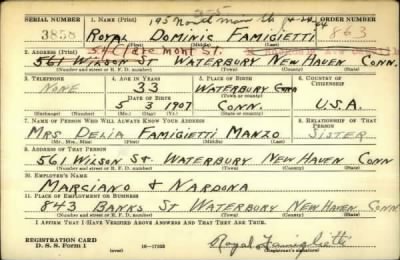 SERIAL NUMBER 1. NAME (Print) ORDER NUMBER
3858 ROYAL DOMINIC FAMIGIETTI 863
(First) (Middle) (Last)
54 Claremont St.
2. ADDRESS (Print)
561 WILSON ST WATERBURY NEW HAVEN CONN.
(Number and street or R. F. D. number) (Town) (County) (State)
3. TELEPHONE 4. AGE IN YEARS 5. PLACE OF BIRTH 6. COUNTRY OF CITIZENSHIP
NONE 33 WATERBURY
DATE OF BIRTH (Town or county)
5 3 1907 CONN. U.S.A.
(Exchange) (Number) (Mo.) (Day) (Yr.) (State or country)
7. NAME OF PERSON WHO WILL ALWAYS KNOW YOUR ADDRESS 8. RELATIONSHIP OF THAT PERSON
MRS DELIA FAMIGIETTI MANZO SISTER
(Mr., Mrs., Miss) (First) (Middle) (Last)
9. ADDRESS OF THAT PERSON
561 WILSON ST. WATERBURY NEW HAVEN CONN
(Number and street or R. F. D. number) (Town) (County) (State)
10. EMPLOYER'S NAME
MARCIANO & NARDONA
11. PLACE OF EMPLOYMENT OR BUSINESS
843 BANKS ST WATERBURY NEW HAVEN CONN
(Number and street or R. F. D. number) (Town) (County) (State)
I AFFIRM THAT I HAVE VERIFIED ABOVE ANSWERS AND THAT THEY ARE TRUE.
REGISTRATION CARD
D. S. S. Form 1 (over) 16—17105 Royal Famiglietti
(Registrant's signature)